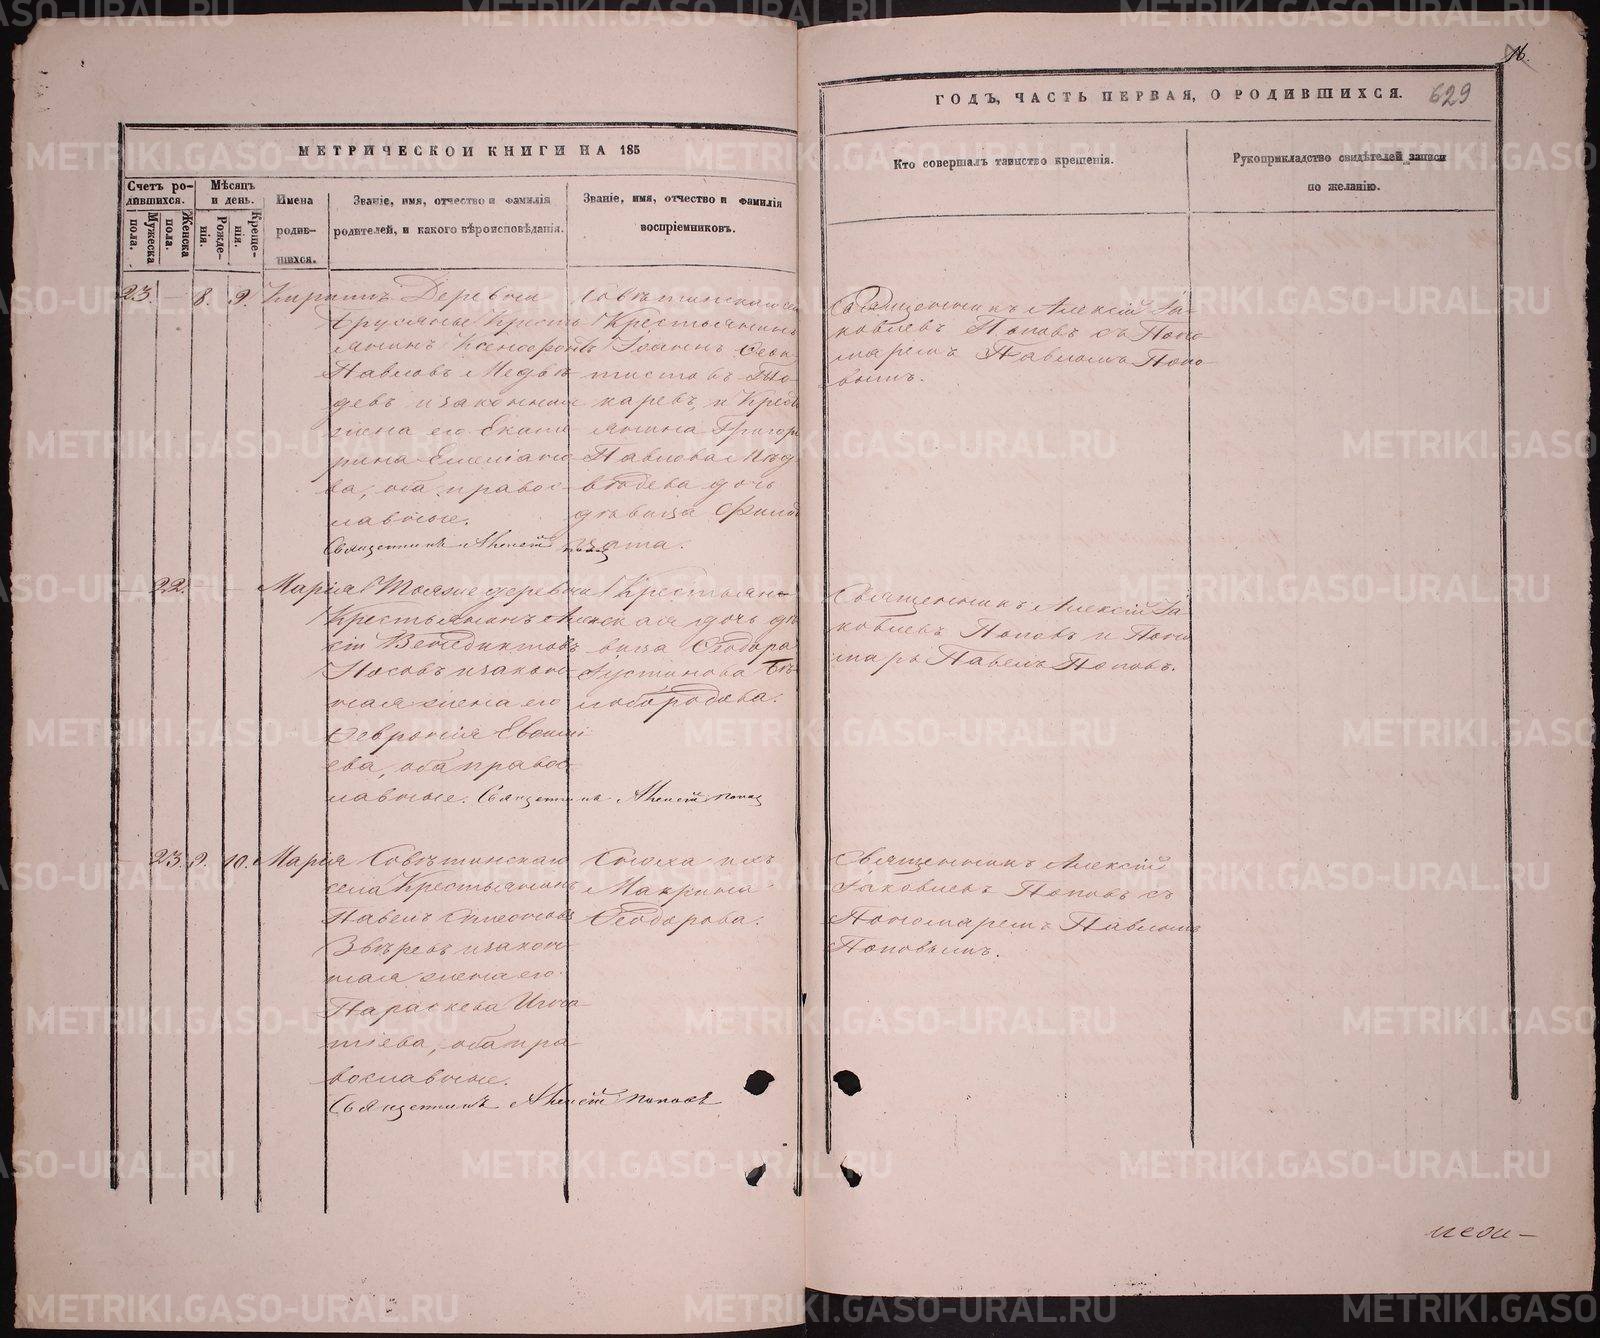 МЕТРИЧЕСКОЙ КНИГИ НА 185
Счетъ ро-
дившихся.
Мужеска
пола.
Женска
пола.
Мѣсяцъ
и день.
Рожде-
нія.
Креще-
нія.
Имена
родив-
шихся.
Званіе, имя, отчество и фамилія
родителей, и какого вѣроисповѣданія.
Званіе, имя, отчество и фамилія
воспріемниковъ.
23. — 8. 9. Кириллъ
Деревни
Крестья
янинъ Ксенофонтъ
Павловъ Медвѣ
девъ и законная
жена его Екате
рина
ва, оба правос-
лавные.
Священникъ Алексій Попов
Совѣтинскаго се
Крестьянинъ
Іоаннъ Ѳеок
тистовъ
каревъ, и Кресть
янина Григорія
Павлова Мед
вѣдева дочь
дѣвица
22. — Маріа
Тоязже деревни
Крестьянинъ Алек
сій Венедиктовъ
Носовъ и закон-
ная жена его
Февронія
ева, оба правос-
лавные. Священникъ Алексій Попов
Крестьян-
ская дочь дѣ
вица Ѳеодора
Іустинова Бѣ
лобородова.
23. 9. 10. Марія
Совѣтинскаго
села Крестьянинъ
Павелъ Симеоновъ
Звѣревъ и закон-
ная жена его
Параскева Игна
тіева, оба пра-
вославные.
Священникъ Алексій Поповъ
Сноха ихъ
Макрина
Ѳеодорова.
16.
ГОДЪ, ЧАСТЬ ПЕРВАЯ, О РОДИВШИХСЯ. 629
Кто совершалъ таинство крещенія.
Рукоприкладство свидѣтелей записи
по желанію.
Священникъ Алексій Іа-
ковлевъ Поповъ съ Поно
маремъ Павломъ Попо
вымъ.
Священникъ Алексій Іа
ковлевъ Поповъ и Поно
марь Павелъ Поповъ.
Священникъ Алексій
Іаковлевъ Поповъ съ
Пономаремъ Павломъ
Поповымъ.
METRIKI.GASO-URAL.RU